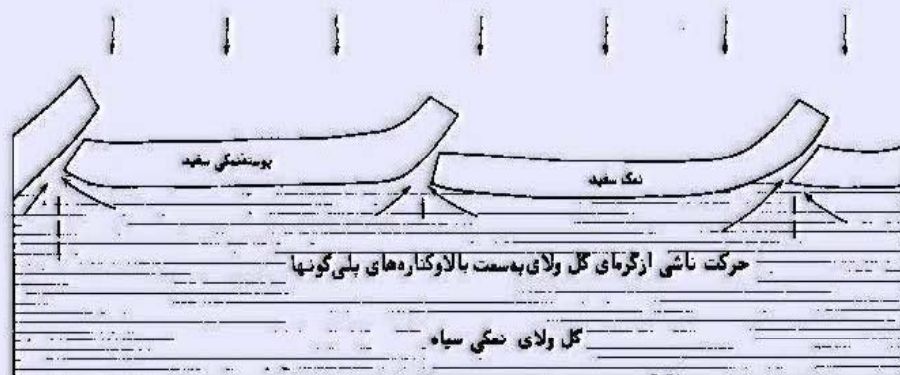 پوسته‌نمکی سفید
نمک سفید
حرکت ناشی ازگرمای گل ولای به‌سمت بالاوکناره‌های پلی‌گونها
گل ولای نمکی سیاه